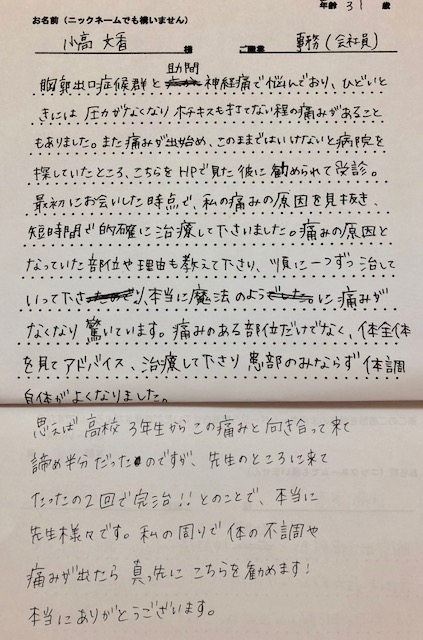 年齢 31 歳
お名前(ニックネームでも構いません)
小高 大香 様 ご職業 事務(会社員)
助間
胸郭出口症候群と神経痛で悩んでおり、ひどいと
きには圧力がなくなりホチキスも打てない程の痛みがあること
もありました。また痛みが出始め、このままではいけないと病院を
探していたところ、こちらをHPで見た彼に勧められて受診。
最初にお会いした時点で、私の痛みの原因を見抜き、
短時間で的確に治療して下さいました。痛みの原因と
なっていた部位や理由も教えて下さり、順に一つずつ治して
いって下さり本当に魔法のように痛みが
なくなり驚いています。痛みのある部位だけでなく、体全体
を見てアドバイス、治療して下さり患部のみならず体調
自体がよくなりました。
思えば高校3年生からこの痛みと向き合って来て
諦め半分だったのですが、先生のところに来て
たったの2回で完治!!とのことで、本当に
先生様々です。私の周りで体の不調や
痛みが出たら真っ先にこちらを勧めます!
本当にありがとうございます。